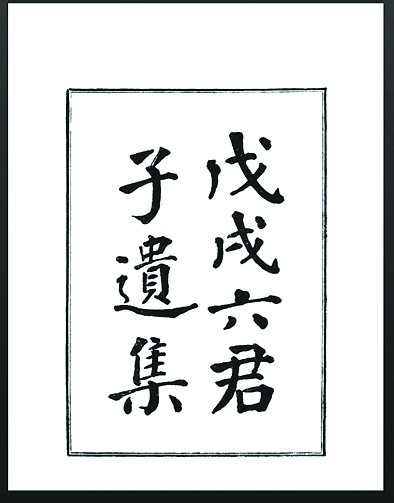 戊戌六君
子遺集